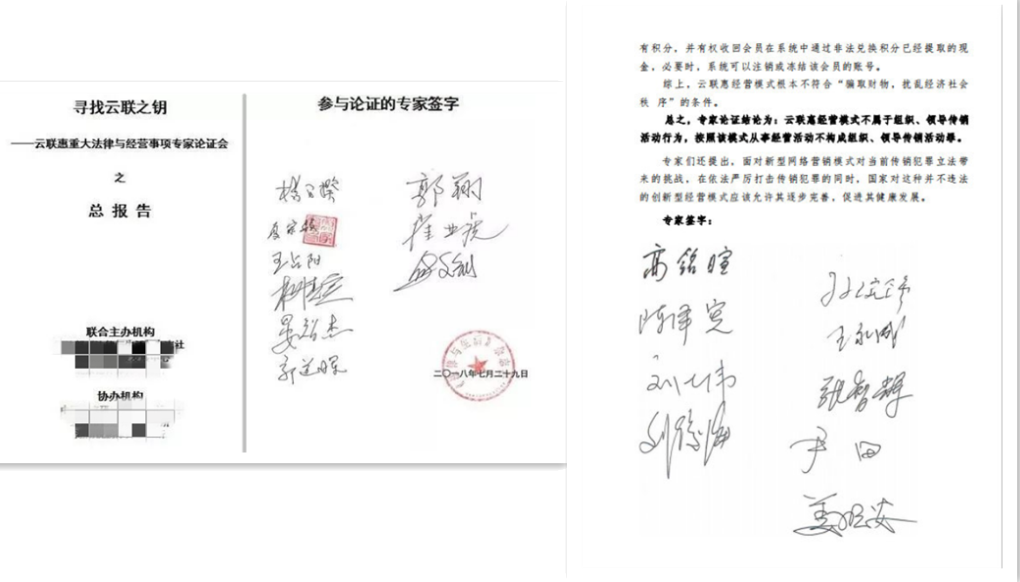 寻找云联之钥
——云联惠重大法律与经营事项专家论证会
之
总 报 告
联合主办机构
社
协办机构
参与论证的专家签字
郭翔
王占阳
晏智杰
郭道晖
二〇一八年七月二十九日
有积分,并有权收回会员在系统中通过非法兑换积分已经提取的现
金,必要时,系统可以注销或冻结该会员的账号。
综上,云联惠经营模式根本不符合“骗取财物,扰乱经济社会
秩 序”的条件。
总之,专家论证结论为:云联惠经营模式不属于组织、领导传销
活动行为,按照该模式从事经营活动不构成组织、领导传销活动罪。
专家们还提出,面对新型网络营销模式对当前传销犯罪立法带
来的挑战,在依法严厉打击传销犯罪的同时,国家对这种并不违法
的创新型经营模式应该允许其逐步完善,促进其健康发展。
专家签字:
高铭暄
陈泽宪
刘仁伟
王永成
张智辉
尹田
姜明安